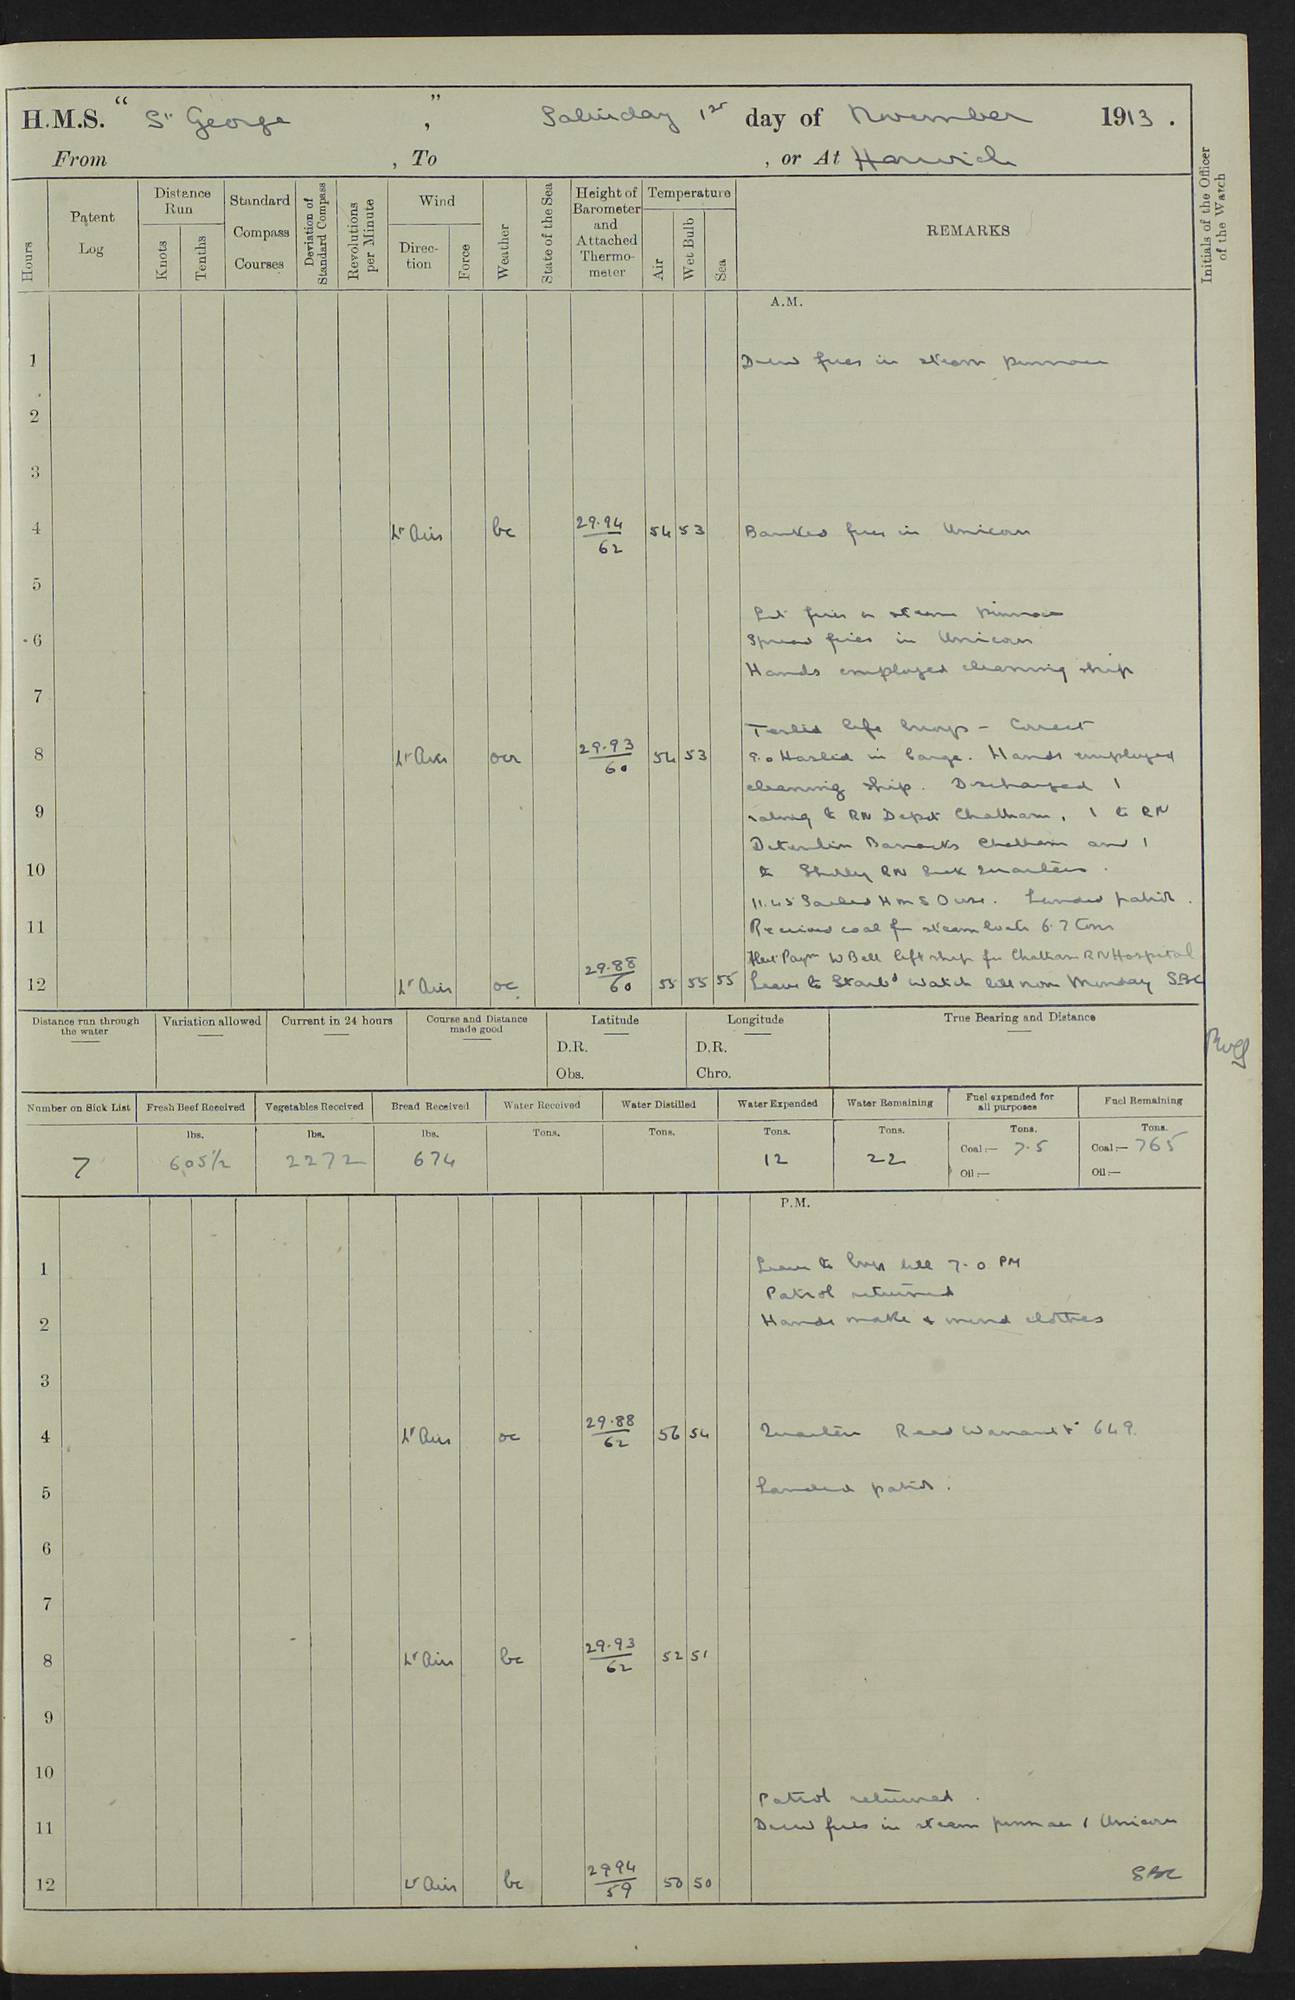 H.M.S. “ St George ”, Saturday 1st day of November 1913.
From , To , or At Harwich
Hours
Patent Log
Distance Run
Knots
Tenths
Standard Compass Courses
Deviation of Standard Compass
Revolutions per Minute
Wind
Direc-tion
Force
Weather
State of the Sea
Height of Barometer and Attached Thermo-meter
Temperature
Air
Wet Bulb
Sea
REMARKS
Initials of the Officer of the Watch
A.M.
1 Drew fires in steam pinnace
2
3
4 Lt Airs bc 29.94/62 54 53 Banked fires in Unicorn
5
Lit fires in steam pinnace
6 Spread fires in Unicorn
Hands employed cleaning ship
7
Tested life buoys - Correct
8 Lt Airs ocr 29.93/60 54 53 9.0 Hoisted in barge. Hands employed
cleaning ship. Discharged 1
9 rating to RN Depot Chatham, 1 to RN
Detention Barracks Chatham and 1
10 to Shotley RN Sick Quarters.
11.45 Sailed HMS Ouse. Landed patrol.
11 Received coal for steam boats 6.7 tons
Asst Paymr W Bell left ship for Chatham RN Hospital
12 Lt Airs oc 29.88/60 55 55 55 Leave to Starbd watch till noon Monday SBC
Distance run through the water
Variation allowed
Current in 24 hours
Course and Distance made good
Latitude
D.R.
Obs.
Longitude
D.R.
Chro.
True Bearing and Distance
Number on Sick List
Fresh Beef Received
Vegetables Received
Bread Received
Water Received
Water Distilled
Water Expended
Water Remaining
Fuel expended for all purposes
Fuel Remaining
lbs. lbs. lbs. Tons. Tons. Tons. Tons. Tons. Tons.
7 605½ 2272 674 12 22 Coal:— 7.5 Coal:— 765
Oil:— Oil:—
P.M.
1 Leave to boys till 7.0 PM
Patrol returned
2 Hands make & mend clothes
3
4 Lt Airs oc 29.88/62 56 54 Quarters Read Warrant 649.
5 Landed patrol.
6
7
8 Lt Airs bc 29.93/62 52 51
9
10
Patrol returned.
11 Drew fires in steam pinnace & Unicorn
12 Lt Airs bc 29 94/59 50 50 SBC